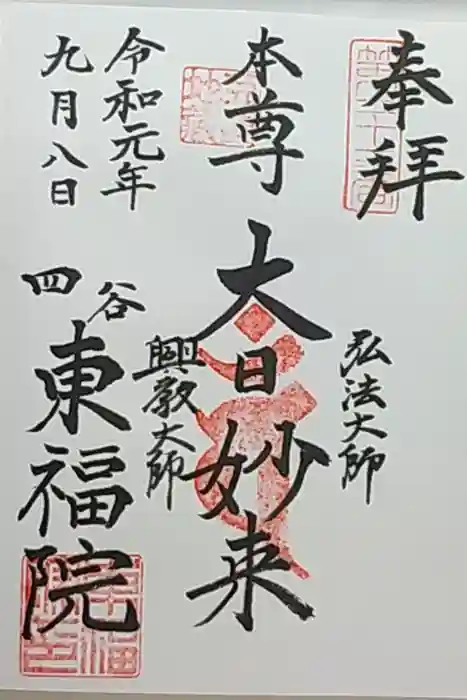 奉拝
本尊
弘法大師
大日妙来
興教大師
令和元年
九月八日
四谷
東福院